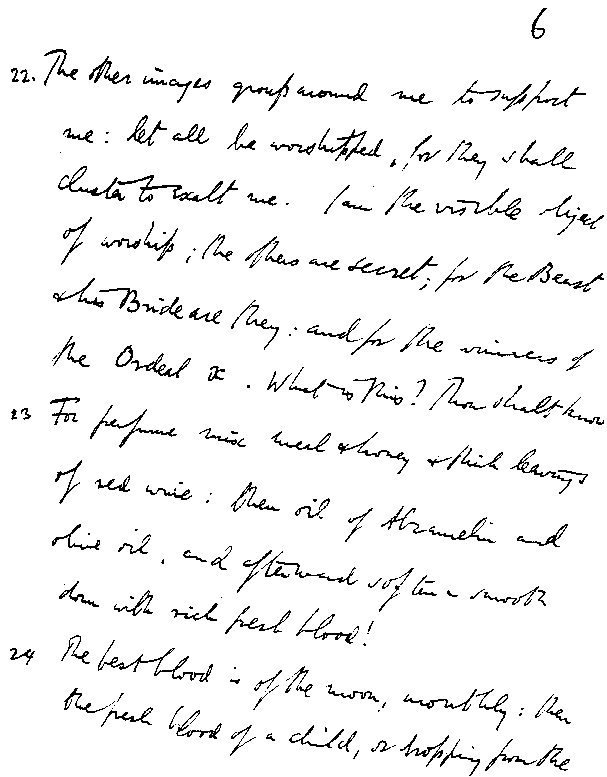 6
22. The other images group around me to support
me: let all be worshipped, for they shall
cluster to exalt me. I am the visible object
of worship; the others are secret; for the Beast
& his Bride are they: and for the winners of
the Ordeal x. What is this? Thou shalt know
23 For perfume mix meal & honey & thick leavings
of red wine: then oil of Abramelin and
olive oil, and afterward soften & smooth
down with rich fresh blood!
24 The best blood is of the moon, monthly: then
the fresh blood of a child, or dropping from the